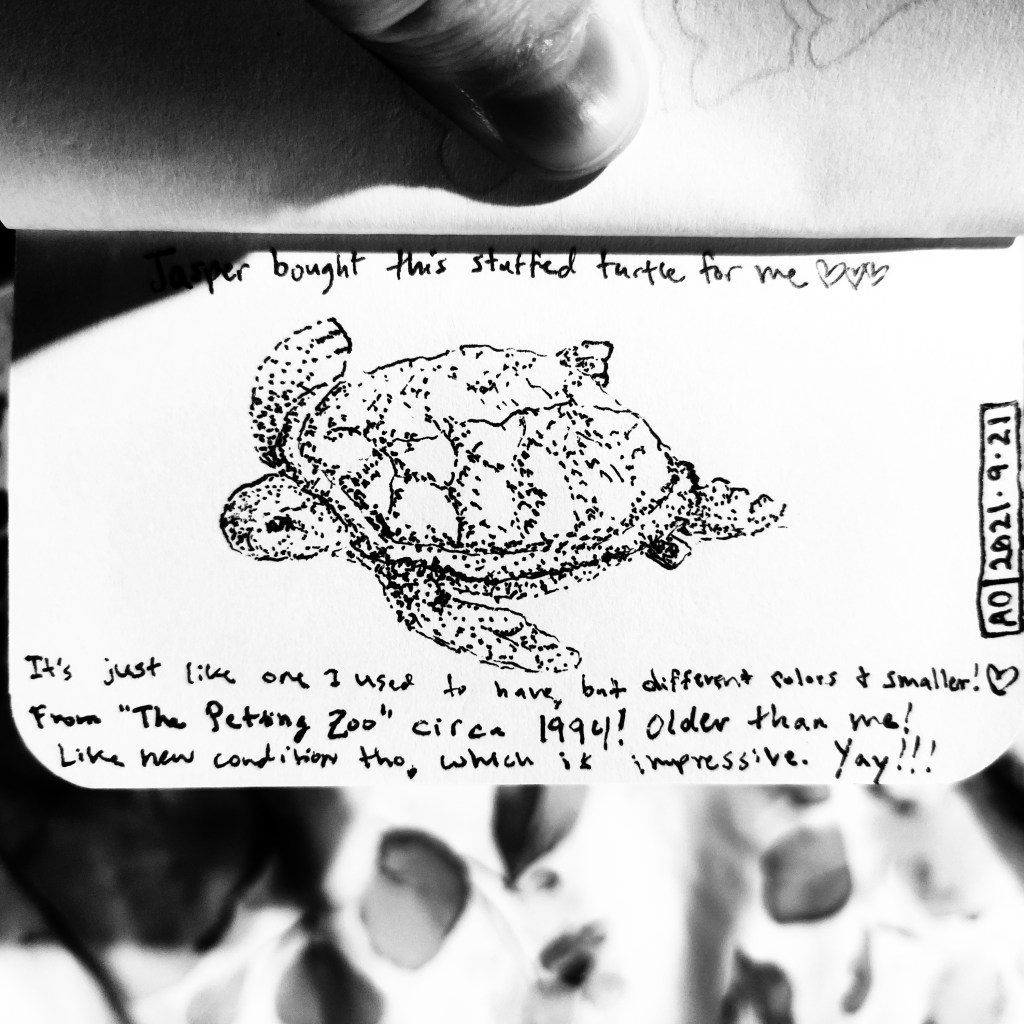 Jasper bought this stuffed turtle for me ♡♡♡
AO 2021.9.21
It's just like one I used to have, but different colors & smaller! ♡
From "The Petting Zoo" circa 1994! Older than me!
Like new condition tho, which is impressive. Yay!!!